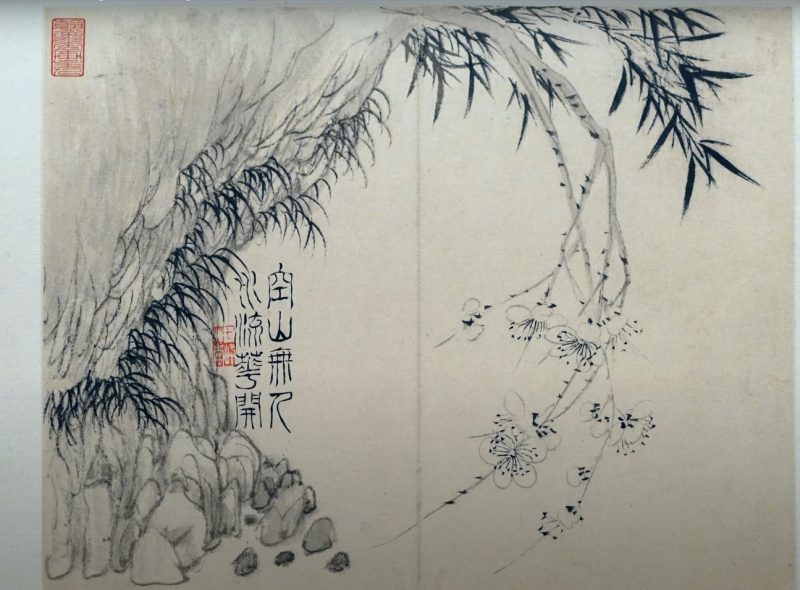 空山無人
水流華開